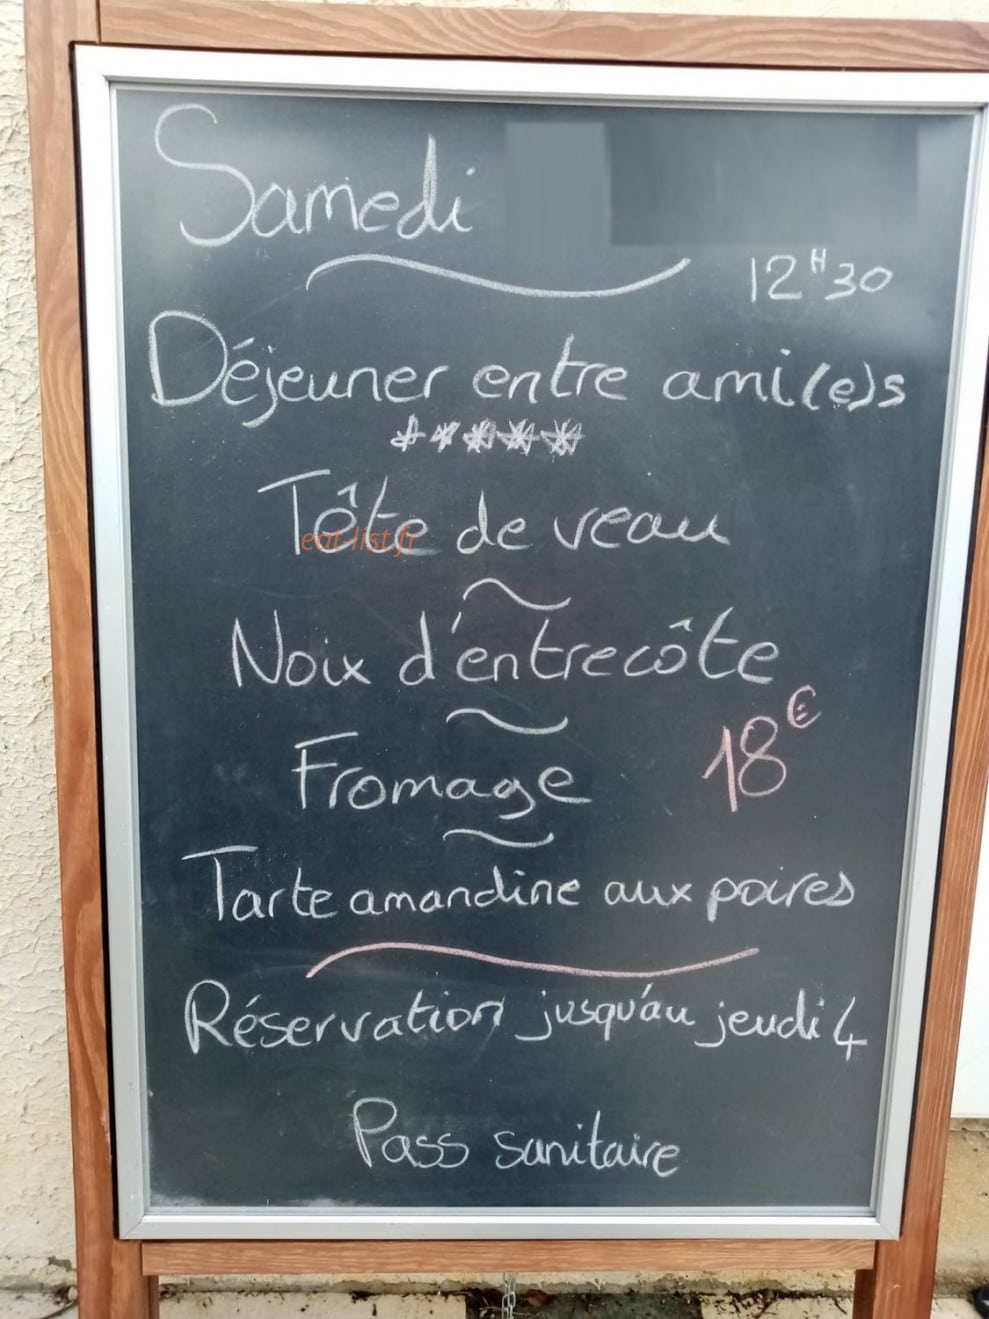 Samedi
12H30
Déjeuner entre ami(e)s
*****
Tête de veau
eat-list.fr
~
Noix d'entrecôte
~
18€
Fromage
~
Tarte amandine aux poires
Réservation jusqu'au jeudi 4
Pass sanitaire